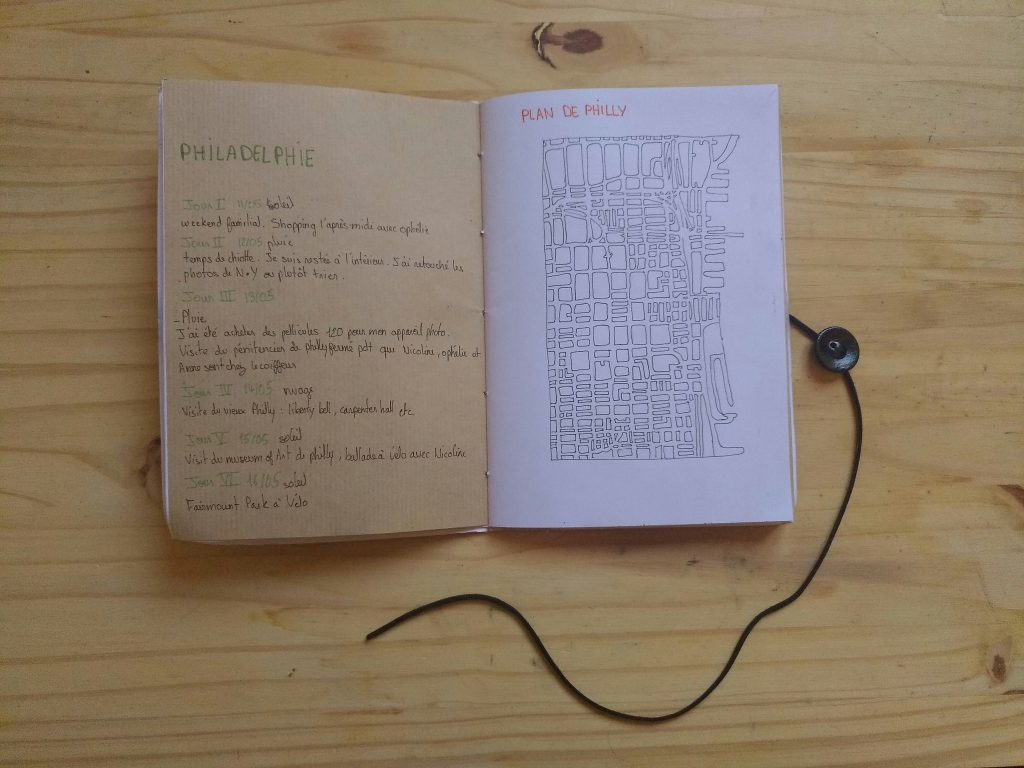 PHILADELPHIE
Jour I 11/05 soleil
weekend familial. Shopping l'après-midi avec ophélie
Jour II 12/05 pluie
temps de chiotte. Je suis restée à l'intérieur. J'ai retouché les
photos de N.Y ou plutôt trier.
Jour III 13/05
- Pluie
J'ai été acheter des pellicules 120 pour mon appareil photo.
Visite du pénitencier de philly fermé pdt que Nicoline, ophélie et
sont chez le coiffeur
Jour IV 14/05 nuage
Visite du vieux Philly : liberty bell, carpenter hall etc
Jour V 15/05 soleil
Visit du museum of Art de philly, ballade à vélo avec Nicoline
Jour VI 16/05 soleil
Fairmount Park à Vélo
PLAN DE PHILLY